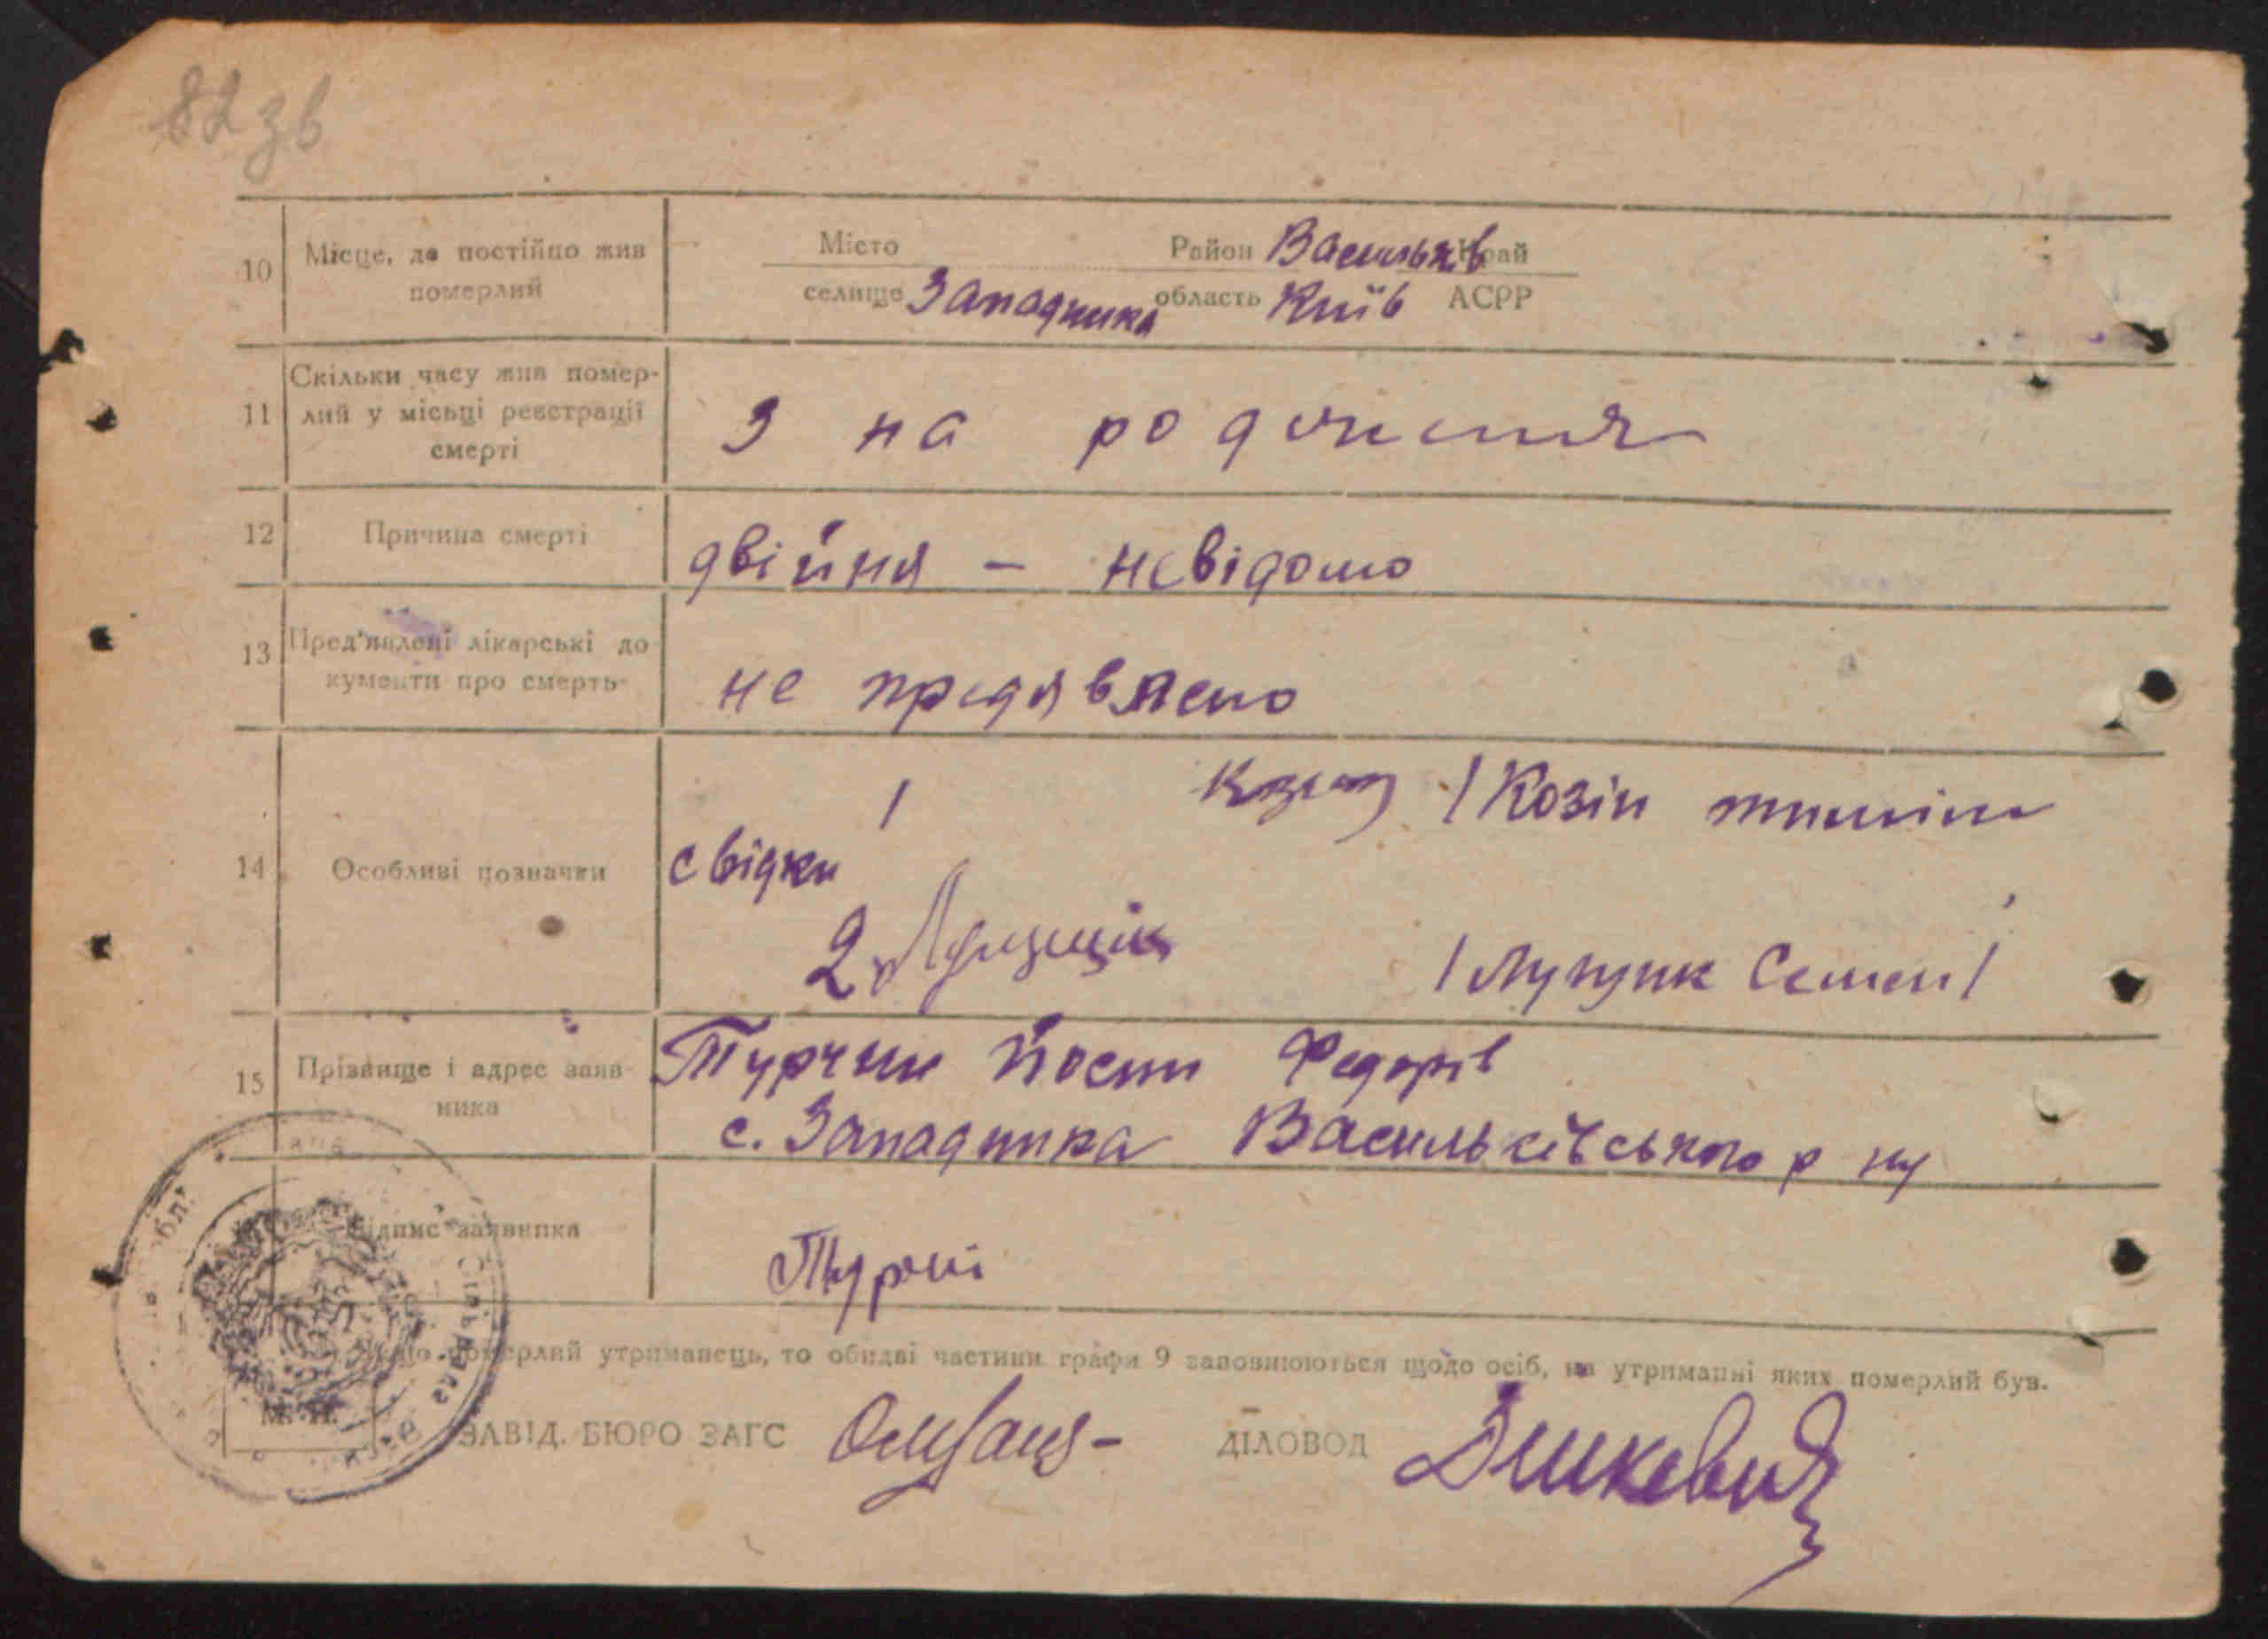 82 зв
10 Місце, де постійно жив померлий
Місто Район Васильків Край
селище Западинка область Київ АСРР
11 Скільки часу жив помер-
лий у місьці реєстрації
смерті
З на родження
12 Причина смерті двійня – невідомо
13 Пред'явлені лікарські до-
кументи про смерть
не предявлено
14 Особливі позначки
1 /Козін
свідки
2 /Лупчик Семен/
15 Прізвище і адрес заяв-
ника
Турчин Йосип Федорів
с. Западинка Васильківського р ну
Підпис заявника
Якщо померлий утриманець, то обидві частини графи 9 заповнюються щодо осіб, на утриманні яких померлий був.
М. П.
ЗАВІД. БЮРО ЗАГС
ДІЛОВОД